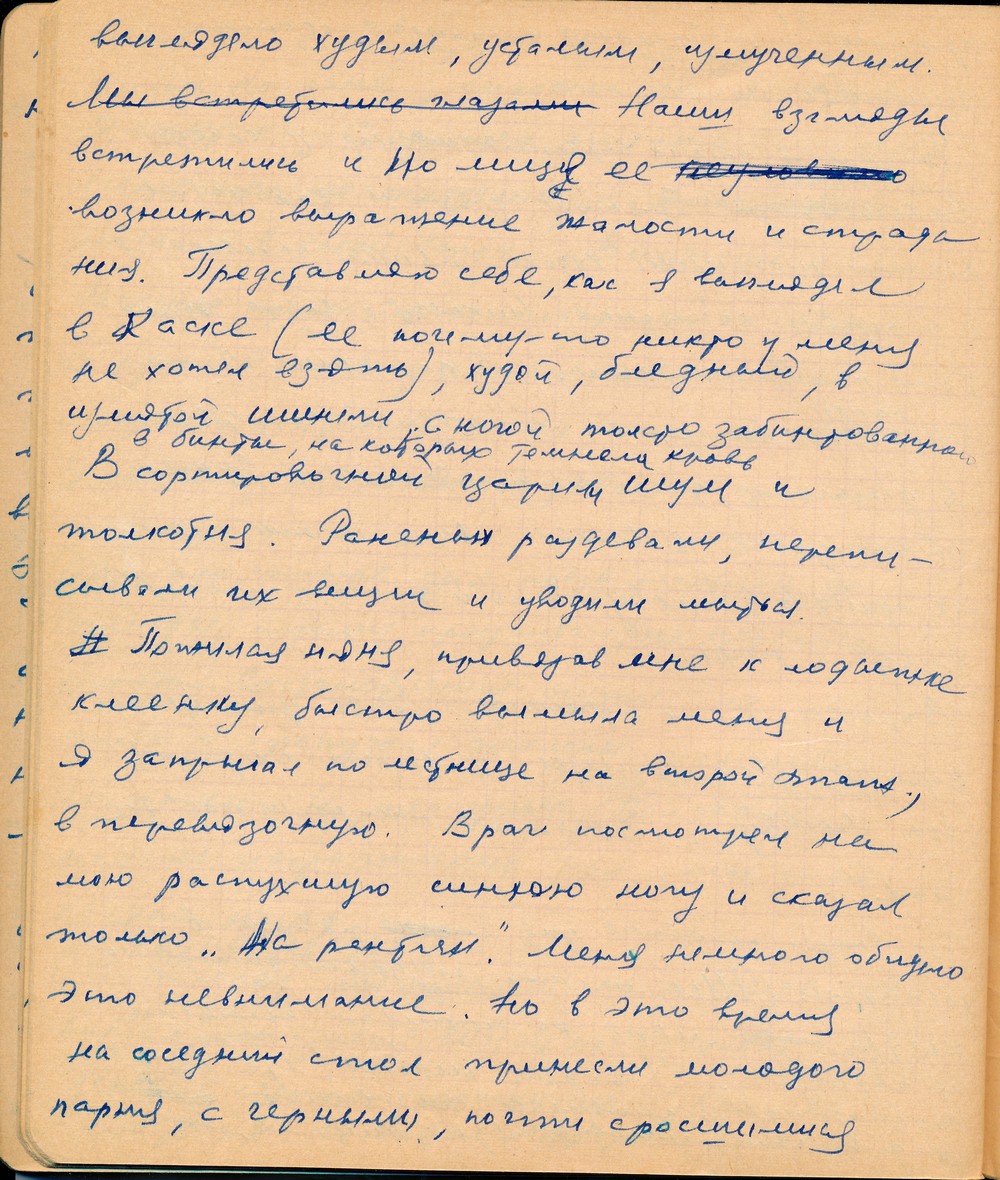 выглядело худым, усталым, измученным.
Мы встретились глазами Наши взгляды
встретились и по лицу ее неуловимо
возникло выражение жалости и страда
ния. Представляю себе, как я выглядел
в каске (ее почему-то никто у меня
не хотел взять), худой, бледный, в
измятой шинели, с ногой толсто забинтованной
в бинты, на которых темнела кровь
В сортировочной царили шум и
толкотня. Раненых раздевали, перепи-
сывали их вещи и уводили мыться.
Пожилая няня, привязав мне к лодыжке
клеенку, быстро вымыла меня и
я запрыгал по лестнице на второй этаж,
в перевязочную. Врач посмотрел на
мою распухшую синюю ногу и сказал
только „На рентген". Меня немного обидело
это невнимание. Но в это время
на соседний стол принесли молодого
парня, с черными, почти сросшимися